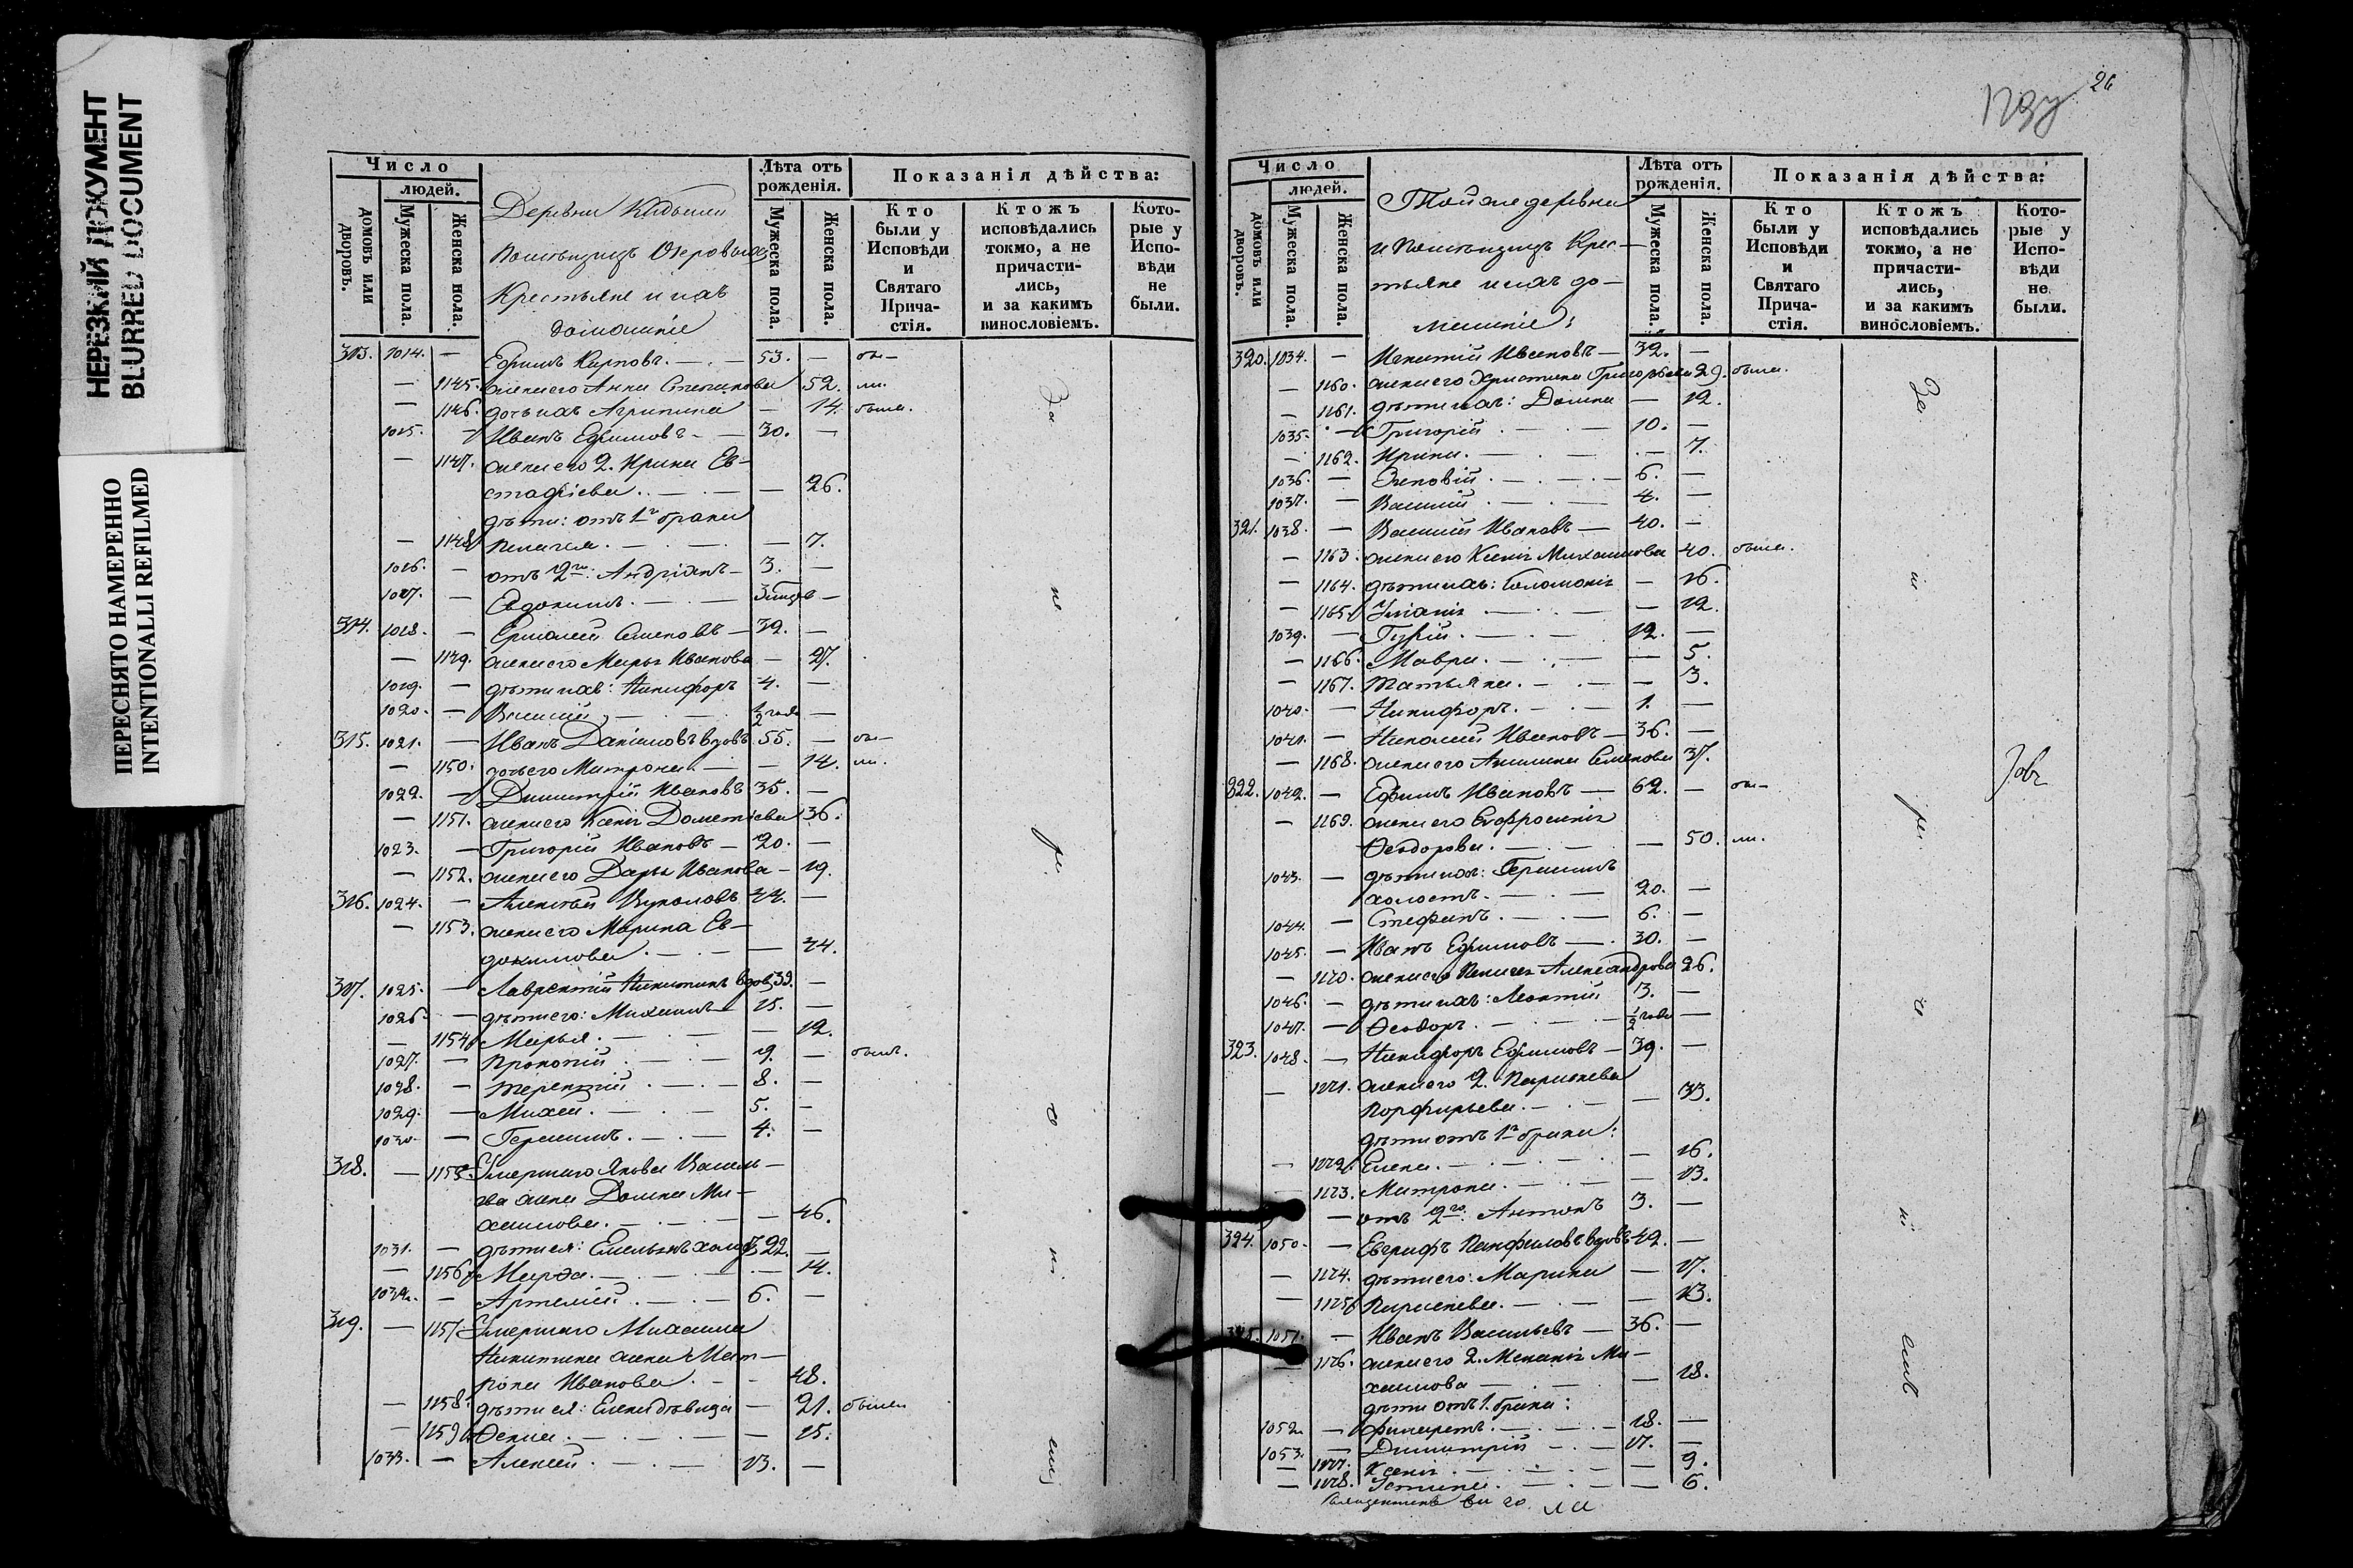 НЕРЕЗКИЙ ДОКУМЕНТ
BLURRED DOCUMENT
ПЕРЕСНЯТО НАМЕРЕННО
INTENTIONALLI REFILMED
Число
людей.
домовъ или дворовъ.
Мужеска пола.
Женска пола.
Деревни
помѣщицъ
Крестьяне и ихъ
домашніе
Лѣта отъ рожденія.
Мужеска пола.
Женска пола.
Показанія дѣйства:
Кто были у Исповѣди и Святаго Причастія.
Ктожъ исповѣдались токмо, а не причастились, и за какимъ винословіемъ.
Которые у Исповѣди не были.
313. 1014. — Ефимъ Карповъ. — 53. — бы-
— 1145. жена его Анна Степанова 52. ли.
— 1146. дочь ихъ Агрипина — 14. была.
1015. — Иванъ Ефимовъ — 30. —
— 1147. жена его 2. Ирина Ев-
стафіева. — — 26.
дѣти: отъ 1го брака
— 1148. Пелагея. — — 7.
1016. — отъ 2го: Андріанъ — 3. —
1017. — Евдокимъ. —
314. 1018. — Ермолай Семеновъ — 32. —
— 1149. жена его Марья Иванова — 27.
1019. — дѣти ихъ: Никифоръ 4. —
1020. — Василій — ½ года —
315. 1021. — Иванъ Даніиловъ вдовъ 55. — бы-
— 1150. дочь его Матрона — 14. ли.
1022. — Димитрій Ивановъ 35. —
— 1151. жена его Ксенія Дометіева 36.
1023. — Григорій Ивановъ — 20. —
— 1152. жена его Дарья Иванова — 19.
316. 1024. — Алексѣй Вуколовъ 44. —
— 1153. жена его Марина Ев-
докимова. — — 44.
317. 1025. — Лаврентій Никитинъ вдовъ 39. —
1026. — дѣти его: Михаилъ 15. —
— 1154. Марья. — — 12.
1027. — Прокопій — 9. — былъ.
1028. — Терентій — 8. —
1029. — Михей. — 5. —
1030. — Герасимъ. — 4. —
318. — 1155. Умершаго Якова Василь-
ева жена Домна Ми-
хаилова. — — 46.
1031. — дѣти ея: Емельянъ холос. 22. —
— 1156. Марѳа. — — 14.
1032. — Артемій. — 6. —
319. — 1157. Умершаго Михаила
Никитина жена Мат-
рона Иванова. — — 48.
— 1158. дѣти ея: Елена дѣвица — 21. были
— 1159. — — 15.
1033. — Алексей. — 13. —
За
не
ра
26
Число
людей.
домовъ или дворовъ.
Мужеска пола.
Женска пола.
Той же деревни
и помѣщицъ Крес-
тьяне и ихъ до-
машніе:
Лѣта отъ рожденія.
Мужеска пола.
Женска пола.
Показанія дѣйства:
Кто были у Исповѣди и Святаго Причастія.
Ктожъ исповѣдались токмо, а не причастились, и за какимъ винословіемъ.
Которые у Исповѣди не были.
320. 1034. — Игнатій Ивановъ — 32. —
— 1160. жена его Христина Григорьева 29. была.
— 1161. дѣти ихъ: Домна — 12.
1035. — Григорій — 10. —
— 1162. Ирина. — — 7.
1036. — Зеновій — 6. —
1037. — Василій — 4. —
321. 1038. — Василій Ивановъ — 40. —
— 1163. жена его Ксенія Михаилова 40. была.
— 1164. дѣти ихъ: Соломонія — 16.
— 1165. Уліанія — — 12.
1039. — Гурій. — 12. —
— 1166. Мавра. — — 5.
— 1167. Татьяна. — — 3.
1040. — Никифоръ. — 1. —
1041. — Николай Ивановъ — 36. —
— 1168. жена его Акилина Семенова 37.
322. 1042. — Ефимъ Ивановъ — 62. — бы-
— 1169. жена его Евфросинія
Ѳеодорова. — — 50. ли.
1043. — дѣти ихъ: Герасимъ
холостъ. — 20. —
1044. — Стефанъ. — 6. —
1045. — Иванъ Ефимовъ — 30. —
— 1170. жена его Пелагея Александрова 26.
1046. — дѣти ихъ: Леонтій 3. —
1047. — Ѳеодоръ. — ½ года —
323. 1048. — Никифоръ Ефимовъ — 39. —
— 1171. жена его 2. Парасковья
Порфирьева. — — 33.
дѣти отъ 1го брака:
— 1172. Елена. — — 16.
— 1173. Матрона. — — 13.
— отъ 2го: Антонъ 3. —
324. 1050. — Евграфъ Панфиловъ вдовъ 42. —
— 1174. дѣти его: Марина — 17.
— 1175. Парасковья. — — 13.
325. 1051. — Иванъ Васильевъ — 36. —
— 1176. жена его 2. Меланія Ми-
хаилова — — 18.
дѣти отъ 1. брака:
1052. — Филаретъ. — 18. —
1053. — Димитрій — 17. —
— 1177. Ксенія — — 9.
— 1178. Устинья. — — 6.